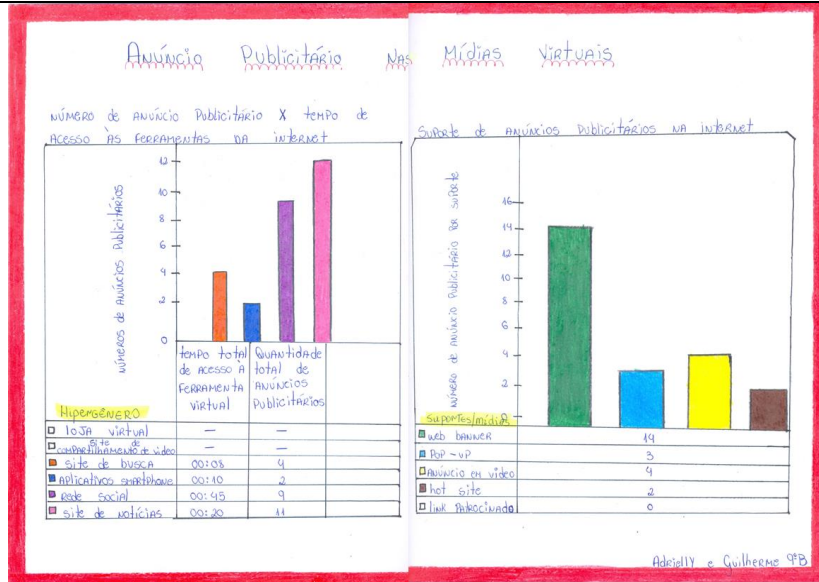 Anúncio Publicitário nas Mídias Virtuais
Número de anúncio publicitário x tempo de
acesso às ferramentas da internet
Números de anúncios publicitários
12
10
8
6
4
2
0
Tempo total de acesso à ferramenta virtual
Quantidade total de anúncios publicitários
Hipergênero
loja virtual — —
site de compartilhamento de vídeo — —
site de busca 00:08 4
aplicativos smartphone 00:10 2
rede social 00:45 9
site de notícias 00:20 11
Suporte de anúncios publicitários na internet
Número de anúncio publicitário por suporte
16
14
12
10
8
6
4
2
suportes/mídias
web banner 14
pop-up 3
anúncio em vídeo 4
hot site 2
link patrocinado 0
Adrielly e Guilherme 9ºB